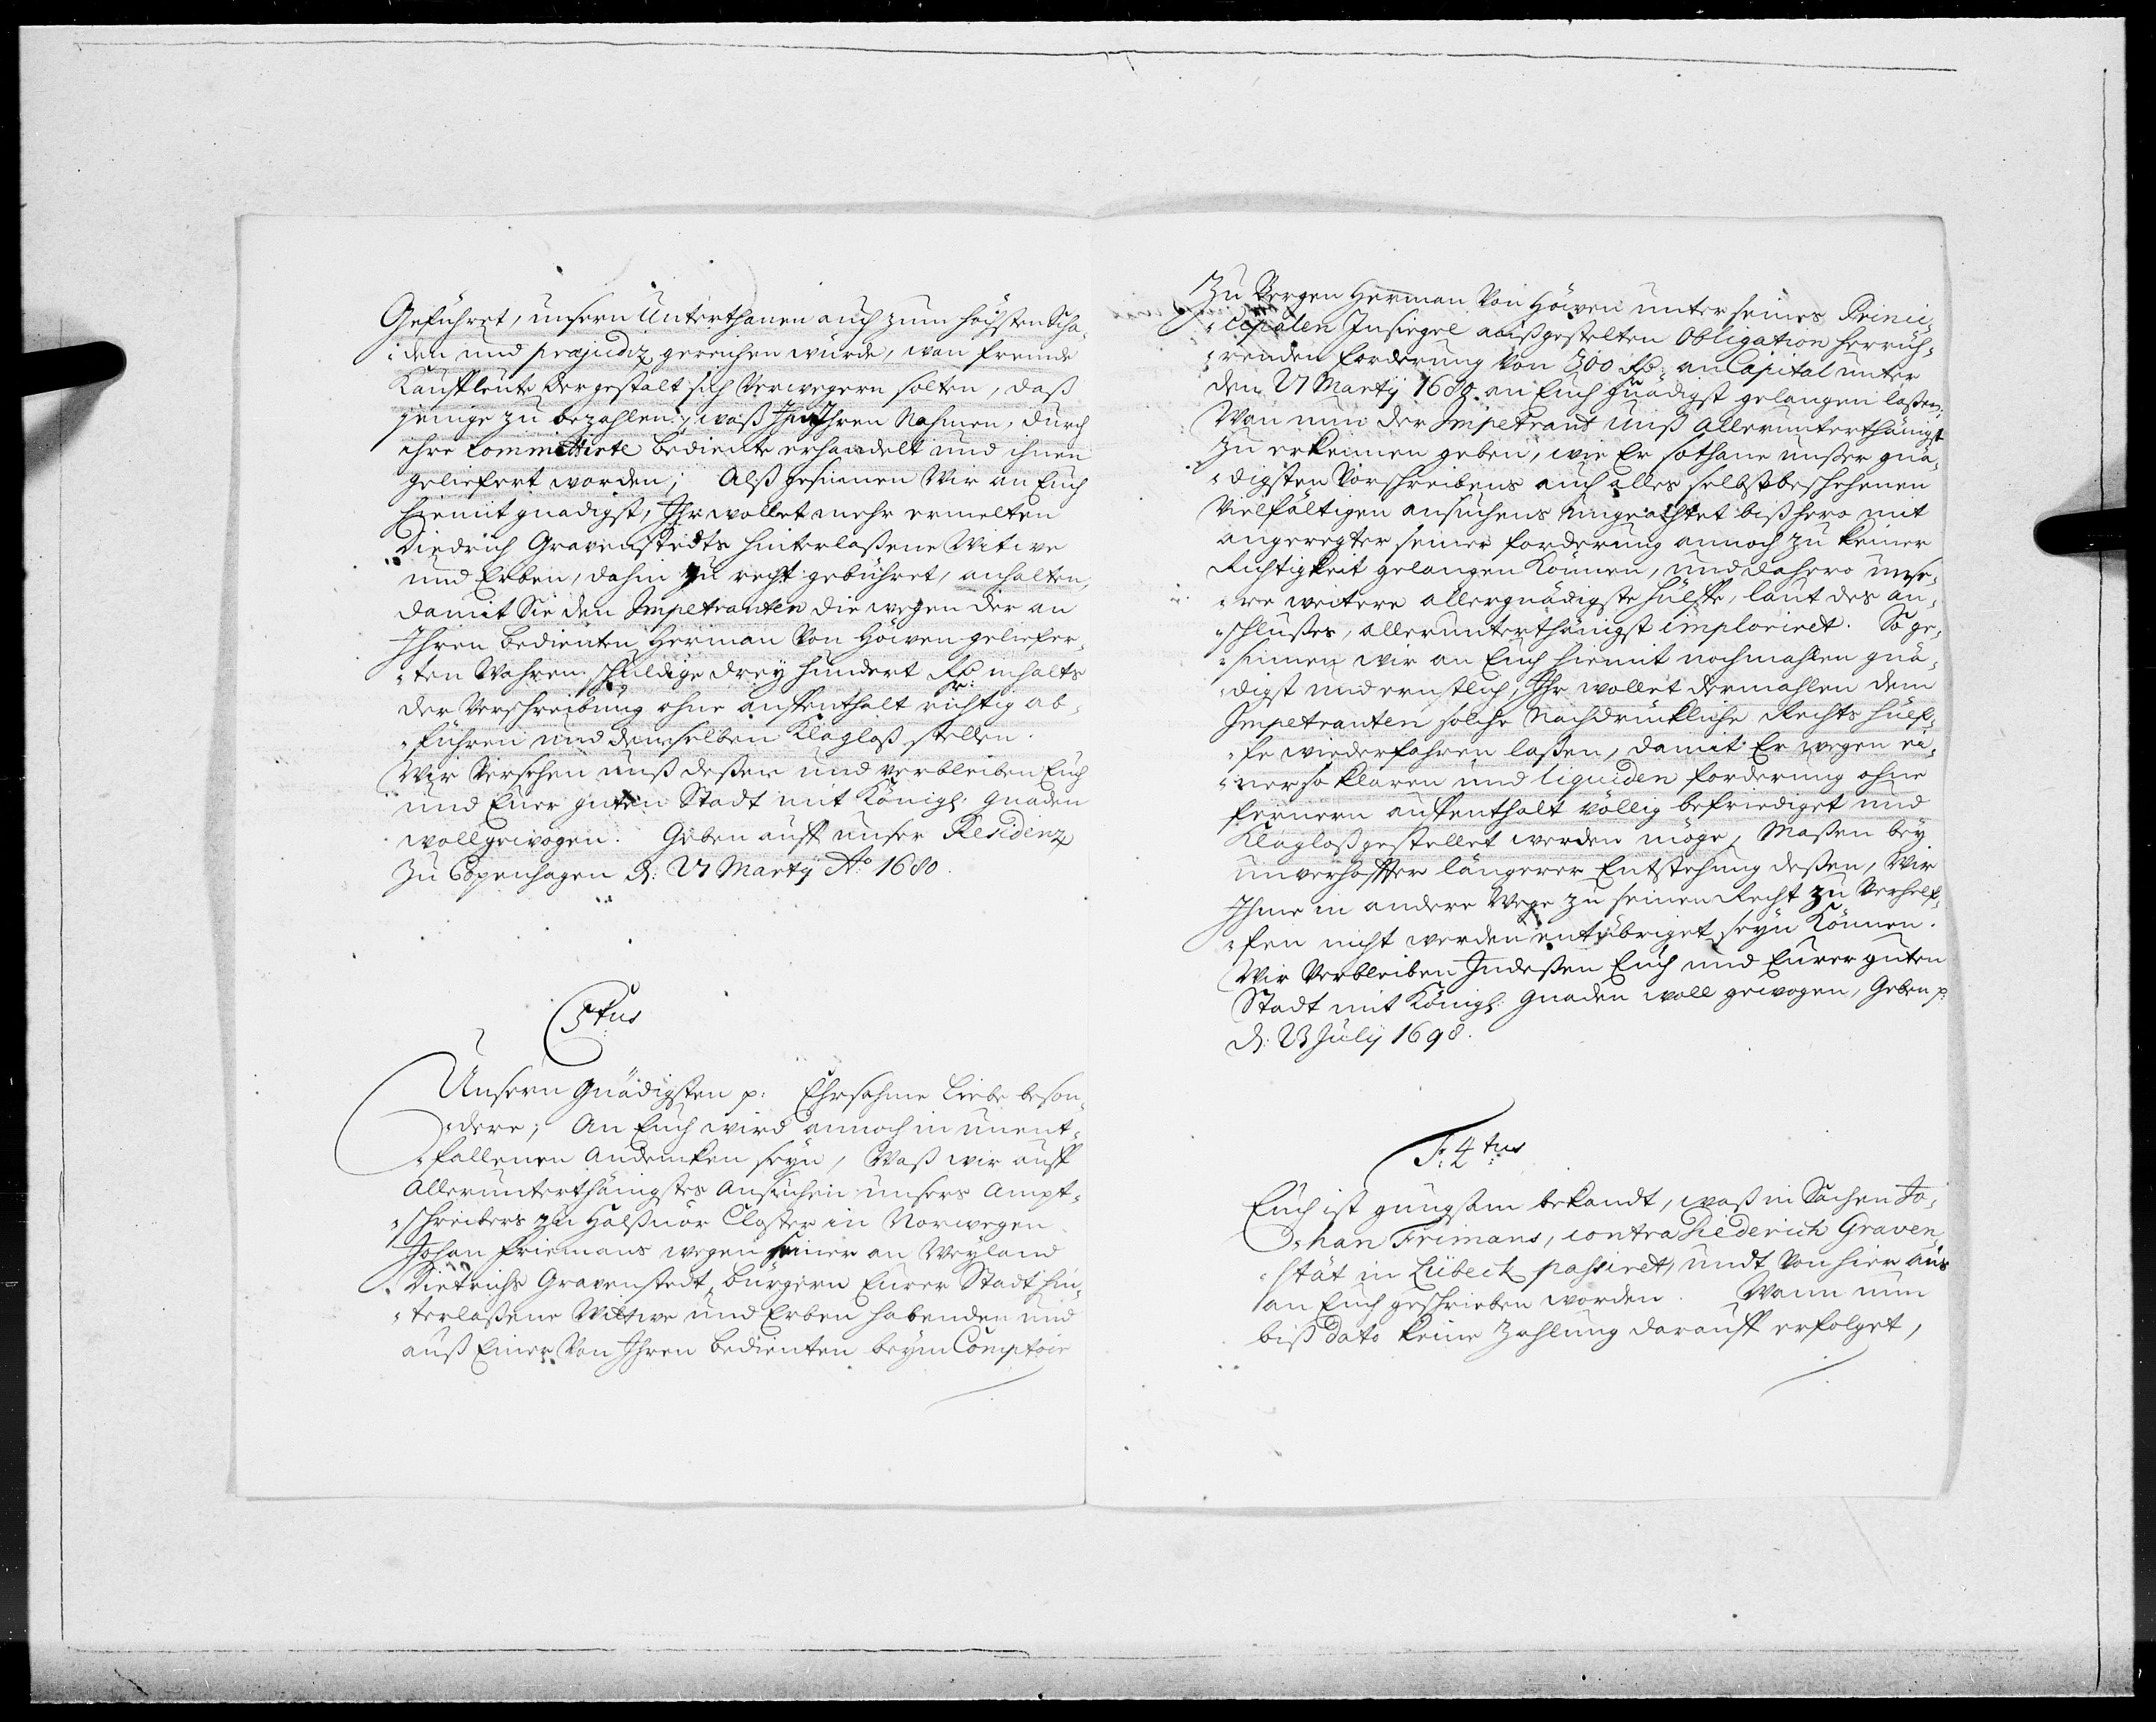 Geführet, unsern Unterthanen auch zum höchsten Scha-
den und præjudiz gereichen würde, wan fremde
Kauffleute dergestalt sich verwegern solten, daß
jenige zu bezahlen, waß In Ihren Nahmen, durch
ihre committirte bediente erhandelt und ihnen
geliefert worden; Alß gesinnen Wir an Euch
hiemit gnädigst, Ihr wollet mehr ermelten
Diedrich Gravenstedts hinterlaßene Witwe
und Erben, dahin zu recht gebühret, anhalten,
damit Sie den Impetranten die wegen der an
Ihren bedienten Herman von Höiven geliefer-
ten Wahren schuldige drey hundert Rdr: inhalts
der Verschreibung ohne auffenthalt richtig ab-
führen und demselben Klagloß stellen.
Wir versehen unß deßen und verbleiben Euch
und Euer guten Stadt mit Königl: Gnaden
wollgewogen. Geben auff unser Residenz
zu Copenhagen d: 27 Martij Ao: 1680.
5tus
Unsern Gnädigsten p: Ehrsahme Liebe beson-
dere; An Euch wird annoch in unent-
fallenen Andencken seyn, Waß wir auff
Allerunterthänigstes Ansuchen unsers Ampt-
schreibers zu Halßnör Closter in Norwegen
Johan Friemans wegen seiner an Weyland
Dietrichs Gravenstedt, bürgern Eurer Stadt hin-
terlaßene Wittwe und Erben habenden und
auß Einer von Ihren bedienten beym Comptoir
zu Bergen Herman von Höiven unter seines Princi-
cipalen Insiegel außgestelten Obligation herrüh-
renden forderung von 300 Rdr: an Capital unter
den 27 Martij 1680. an Euch gnädigst gelangen laßen;
Wan nun der Impetrant unß Allerunterthänigst
zu erkennen geben, wie Er sothane unßer gnä-
digsten Vorschreibens auch alles selbst beschehenen
vielfältigen ansuchens ungeachtet biß hero mit
angeregter seiner forderung annoch zu keiner
Richtigkeit gelangen können, und dahero unse-
re weitere allergnädigste hülffe, laut des an-
schlußes, allerunterthänigst imploriret. So ge-
sinnen wir an Euch hiemit nochmahlen gnä-
digst und ernstlich, Ihr wollet dermahlen dem
Impetranten solche Nachdrückliche Rechts hülf-
fe wiederfahren laßen, damit Er wegen ei-
ner so klaren und liquiden forderung ohne
fernern auffenthalt völlig befriediget und
Klagloß gestellet werden möge, Maßen bey
unverhoffter längerer Entstehung deßen, Wir
Ihme in andere Wege zu seinen Recht zu verhelf-
fen nicht werden entübriget seyn können.
Wir verbleiben Indeßen Euch und Eurer guten
Stadt mit Königl: Gnaden woll gewogen, Geben p:
d: 23 July 1698.
F: 4tus
Euch ist gungsam bekandt, waß in Sachen Jo-
han Frimans, contra Diederich Graven-
stät in Lübeck passiret, undt von hier aus
an Euch geschrieben worden. Wann nun
biß dato keine Zahlung darauff erfolget,